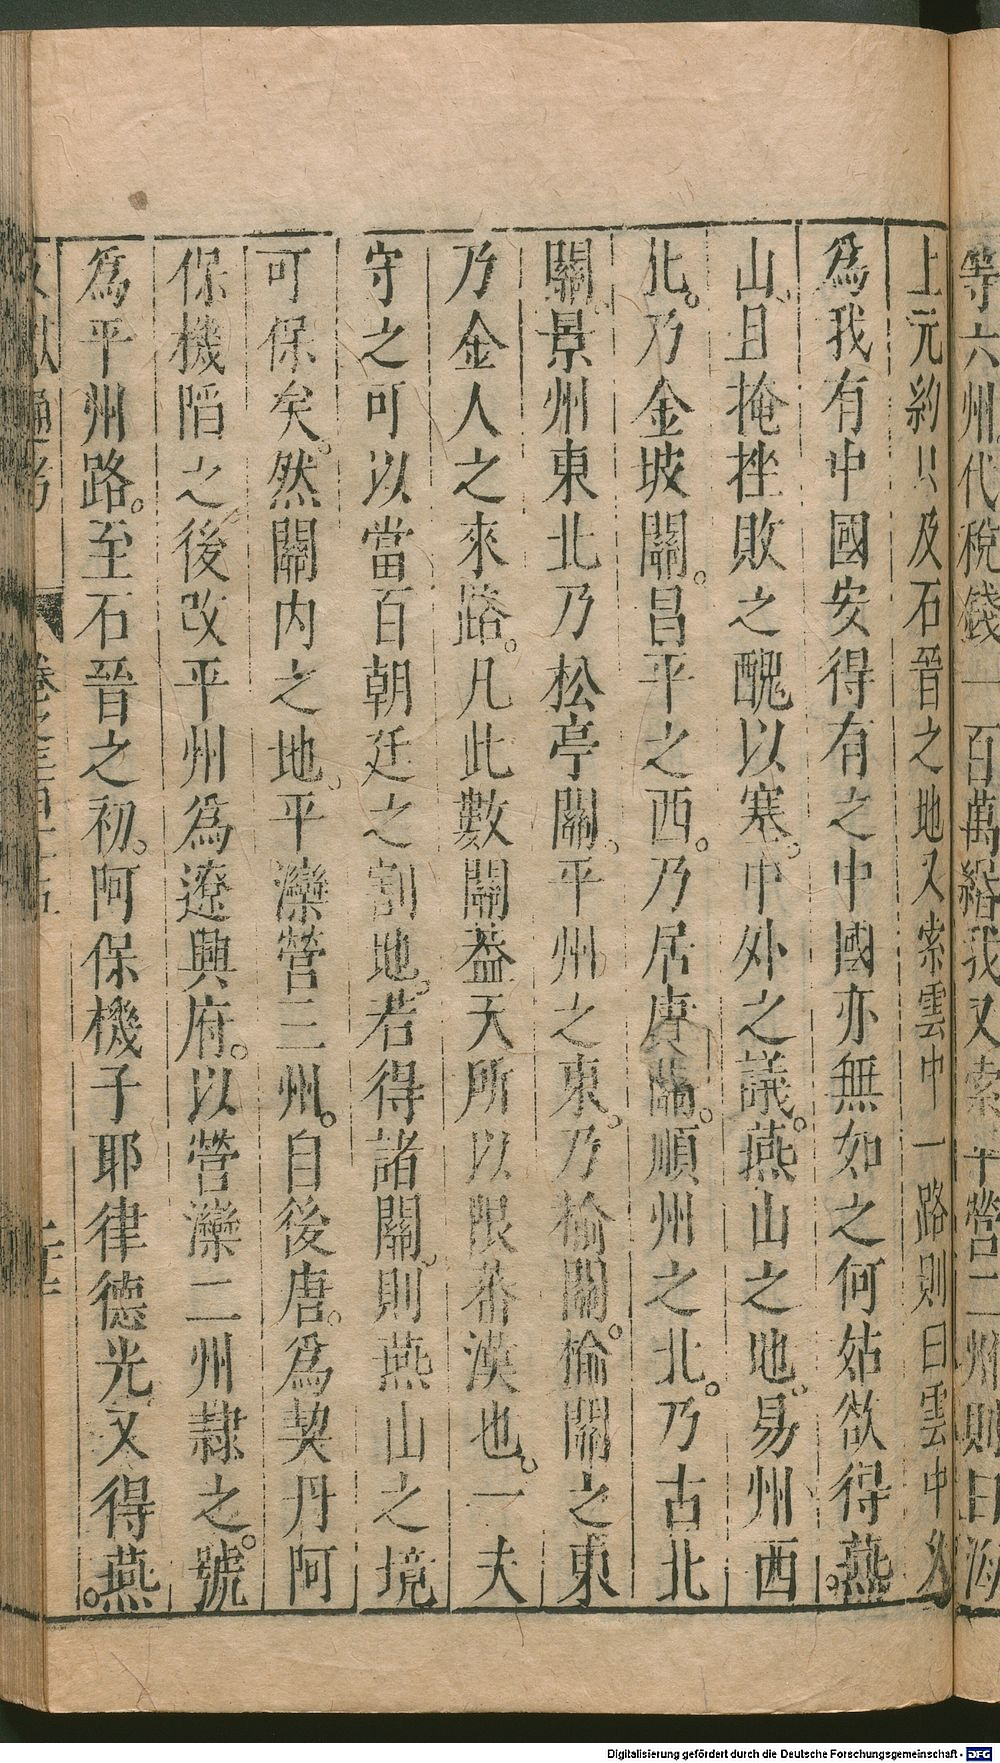 等六州代稅錢一百萬緡我又索平營二州則曰海
上元約只及石晉之地又索雲中一路則曰雲中久
爲我有中國安得有之中國亦無如之何姑欲得燕
山且掩挫敗之醜以塞中外之議燕山之地易州西
北乃金坡關昌平之西乃居庸關順州之北乃古北
關景州東北乃松亭關平州之東乃榆關榆關之東
乃金人之來路凡此數關葢天所以限番漢也一夫
守之可以當百朝廷之割地若得諸關則燕山之境
可保矣然關内之地平灤營三州自後唐爲契丹阿
保機陷之後改平州爲遼興府以營灤二州隸之號
爲平州路至石晉之初阿保機子耶律德光又得燕
Digitalisierung gefördert durch die Deutsche Forschungsgemeinschaft - DFG